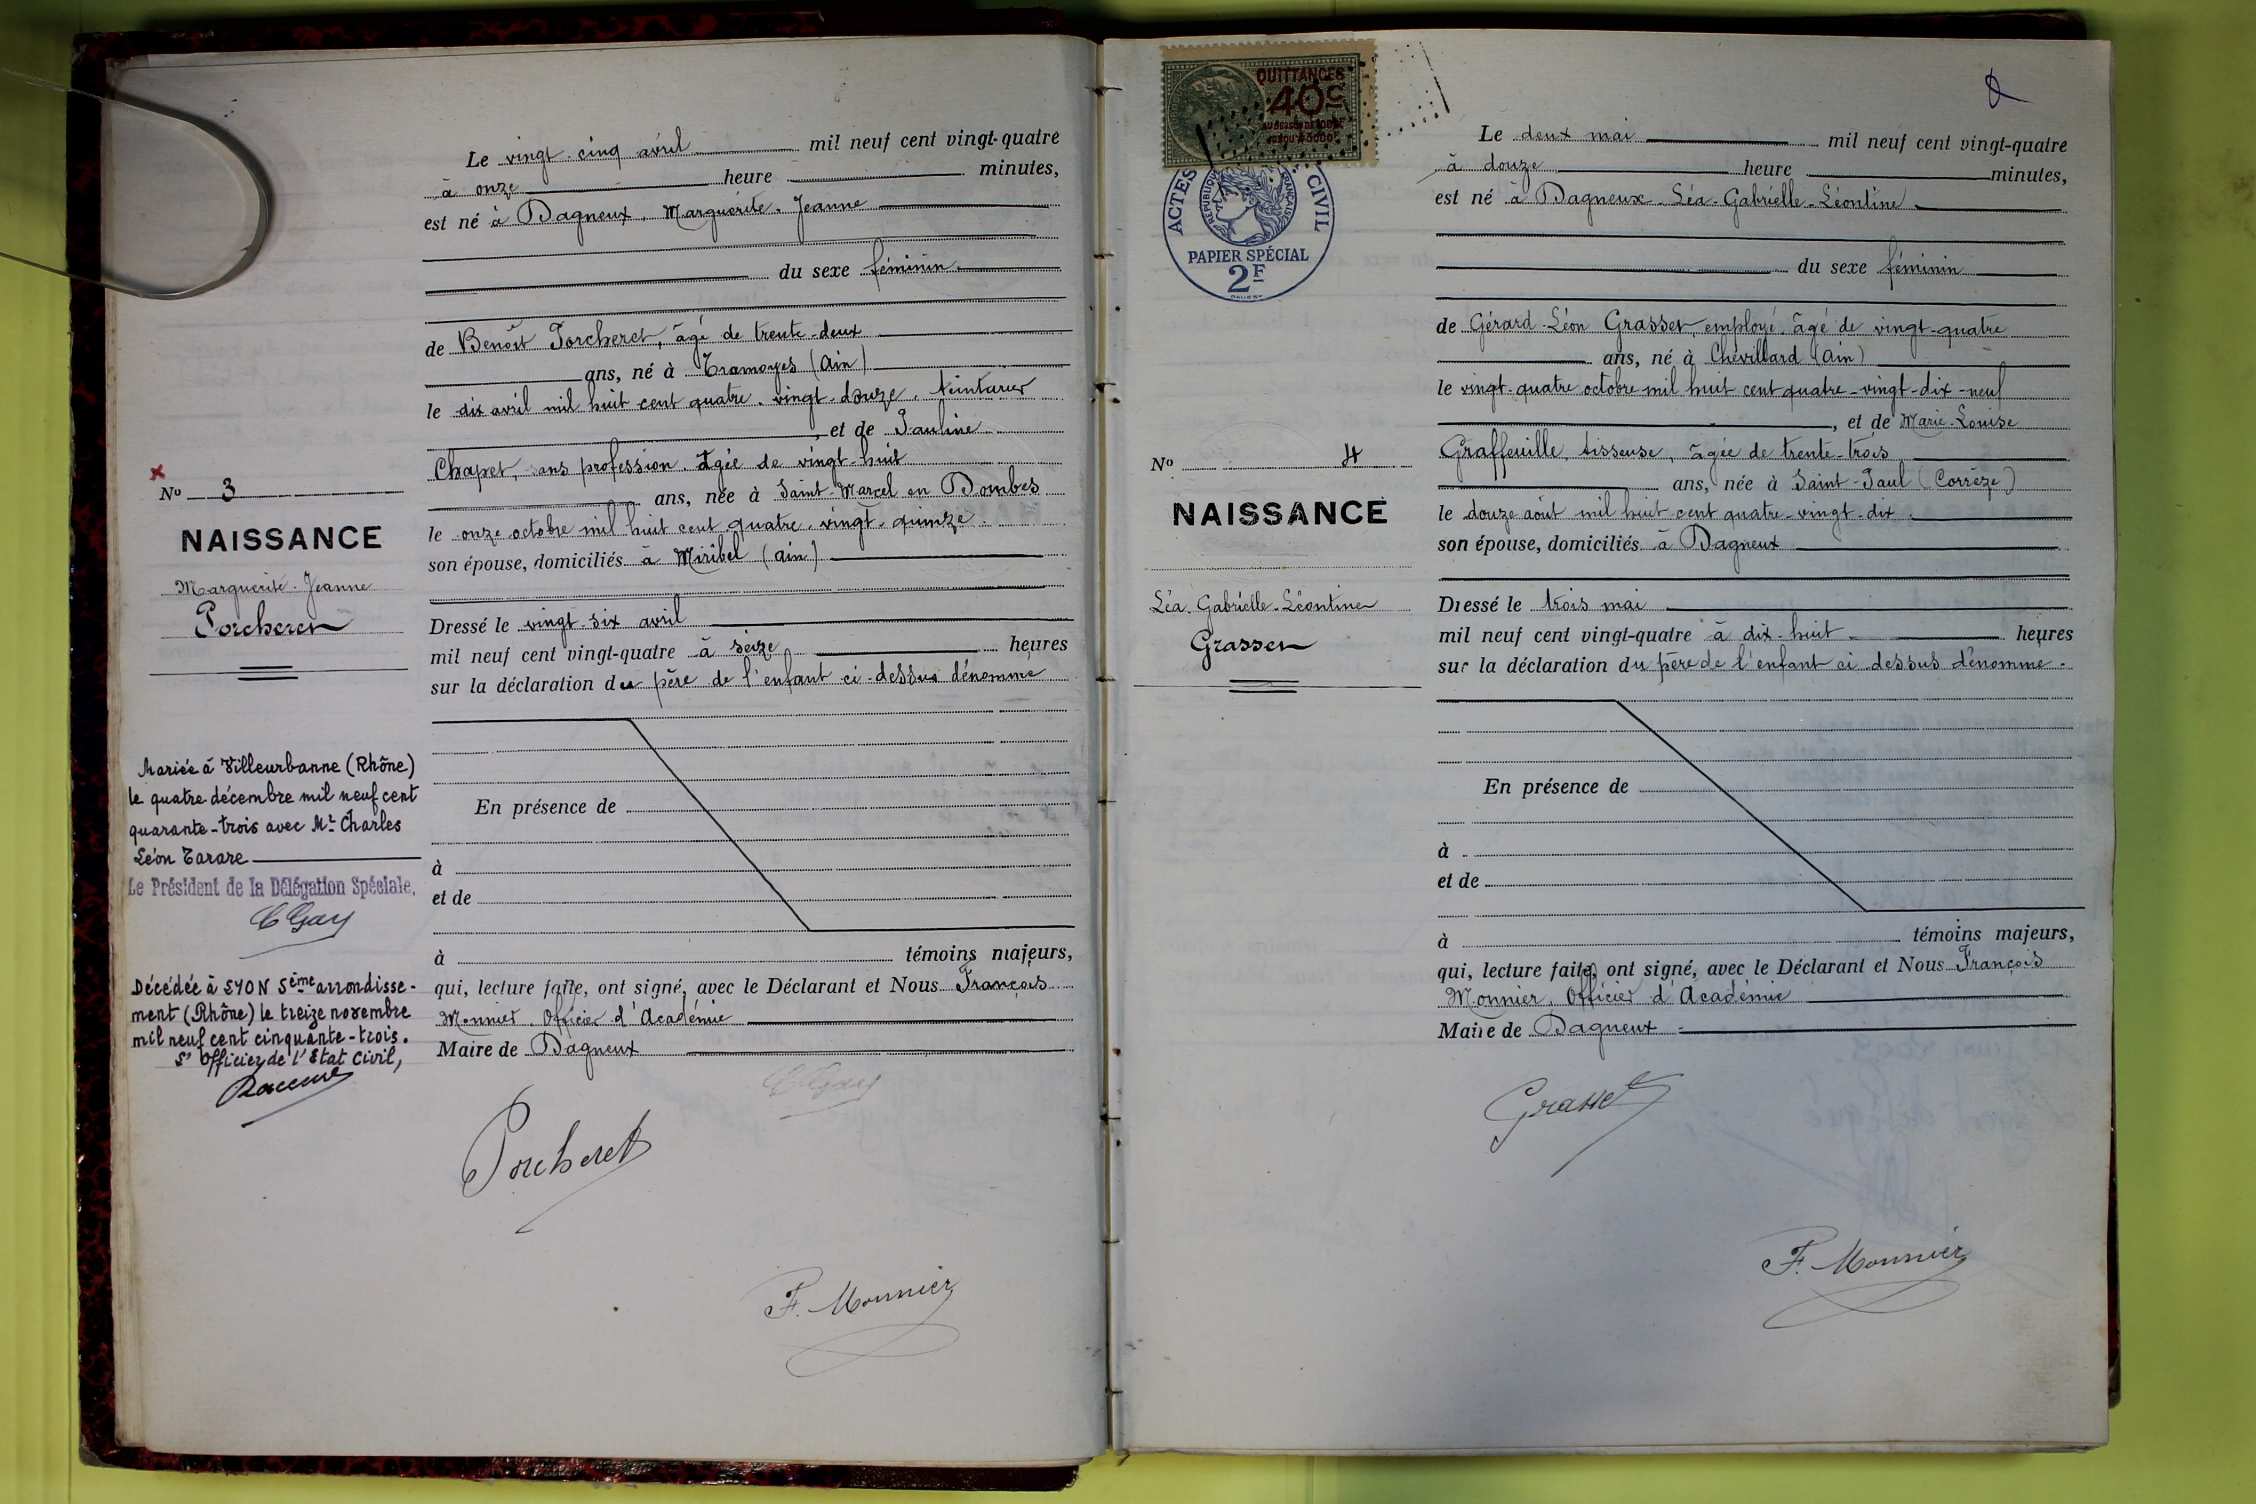 Le vingt-cinq avril mil neuf cent vingt-quatre
à onze heure minutes,
est né à Dagneux. Marguerite. Jeanne
du sexe féminin
de Benoît Porcheret, âgé de trente-deux
ans, né à Tramoyes (Ain)
le dix avril mil huit cent quatre-vingt-douze, teinturier
, et de Pauline
Chapet, sans profession, âgée de vingt-huit
ans, née à Saint-Marcel en Dombes
le onze octobre mil huit cent quatre-vingt-quinze.
son épouse, domiciliés à Miribel (Ain)
Dressé le vingt-six avril
mil neuf cent vingt-quatre à seize heures
sur la déclaration du père de l'enfant ci-dessus dénommé
En présence de
à
et de
à témoins majeurs,
qui, lecture faite, ont signé, avec le Déclarant et Nous François
Monnier, Officier d'Académie
Maire de Dagneux
C Gay
Porcheret
F. Monnier
No 3
NAISSANCE
Marguerite-Jeanne
Porcheret
Mariée à Villeurbanne (Rhône)
le quatre décembre mil neuf cent
quarante-trois avec Mr Charles
Léon Tarare
Le Président de la Délégation Spéciale,
C Gay
Décédée à LYON 5ème arrondisse-
ment (Rhône) le treize novembre
mil neuf cent cinquante-trois.
L'Officier de l'Etat Civil,
QUITTANCES
40c
ACTES CIVIL
REPUBLIQUE FRANÇAISE
PAPIER SPÉCIAL
2F
Le deux mai mil neuf cent vingt-quatre
à douze heure minutes,
est né à Dagneux Léa-Gabrielle-Léontine
du sexe féminin
de Gérard-Léon Grasset, employé, âgé de vingt-quatre
ans, né à Chevillard (Ain)
le vingt-quatre octobre mil huit cent quatre-vingt-dix-neuf
, et de Marie-Louise
Graffeuille, tisseuse, âgée de trente-trois
ans, née à Saint-Paul (Corrèze)
le douze août mil huit cent quatre-vingt-dix
son épouse, domiciliés à Dagneux
Dressé le trois mai
mil neuf cent vingt-quatre à dix-huit heures
sur la déclaration du père de l'enfant ci dessus dénommé.
En présence de
à
et de
à témoins majeurs,
qui, lecture faite, ont signé, avec le Déclarant et Nous François
Monnier, Officier d'Académie
Maire de Dagneux
Grasset
F. Monnier
No 4
NAISSANCE
Léa-Gabrielle-Léontine
Grasset